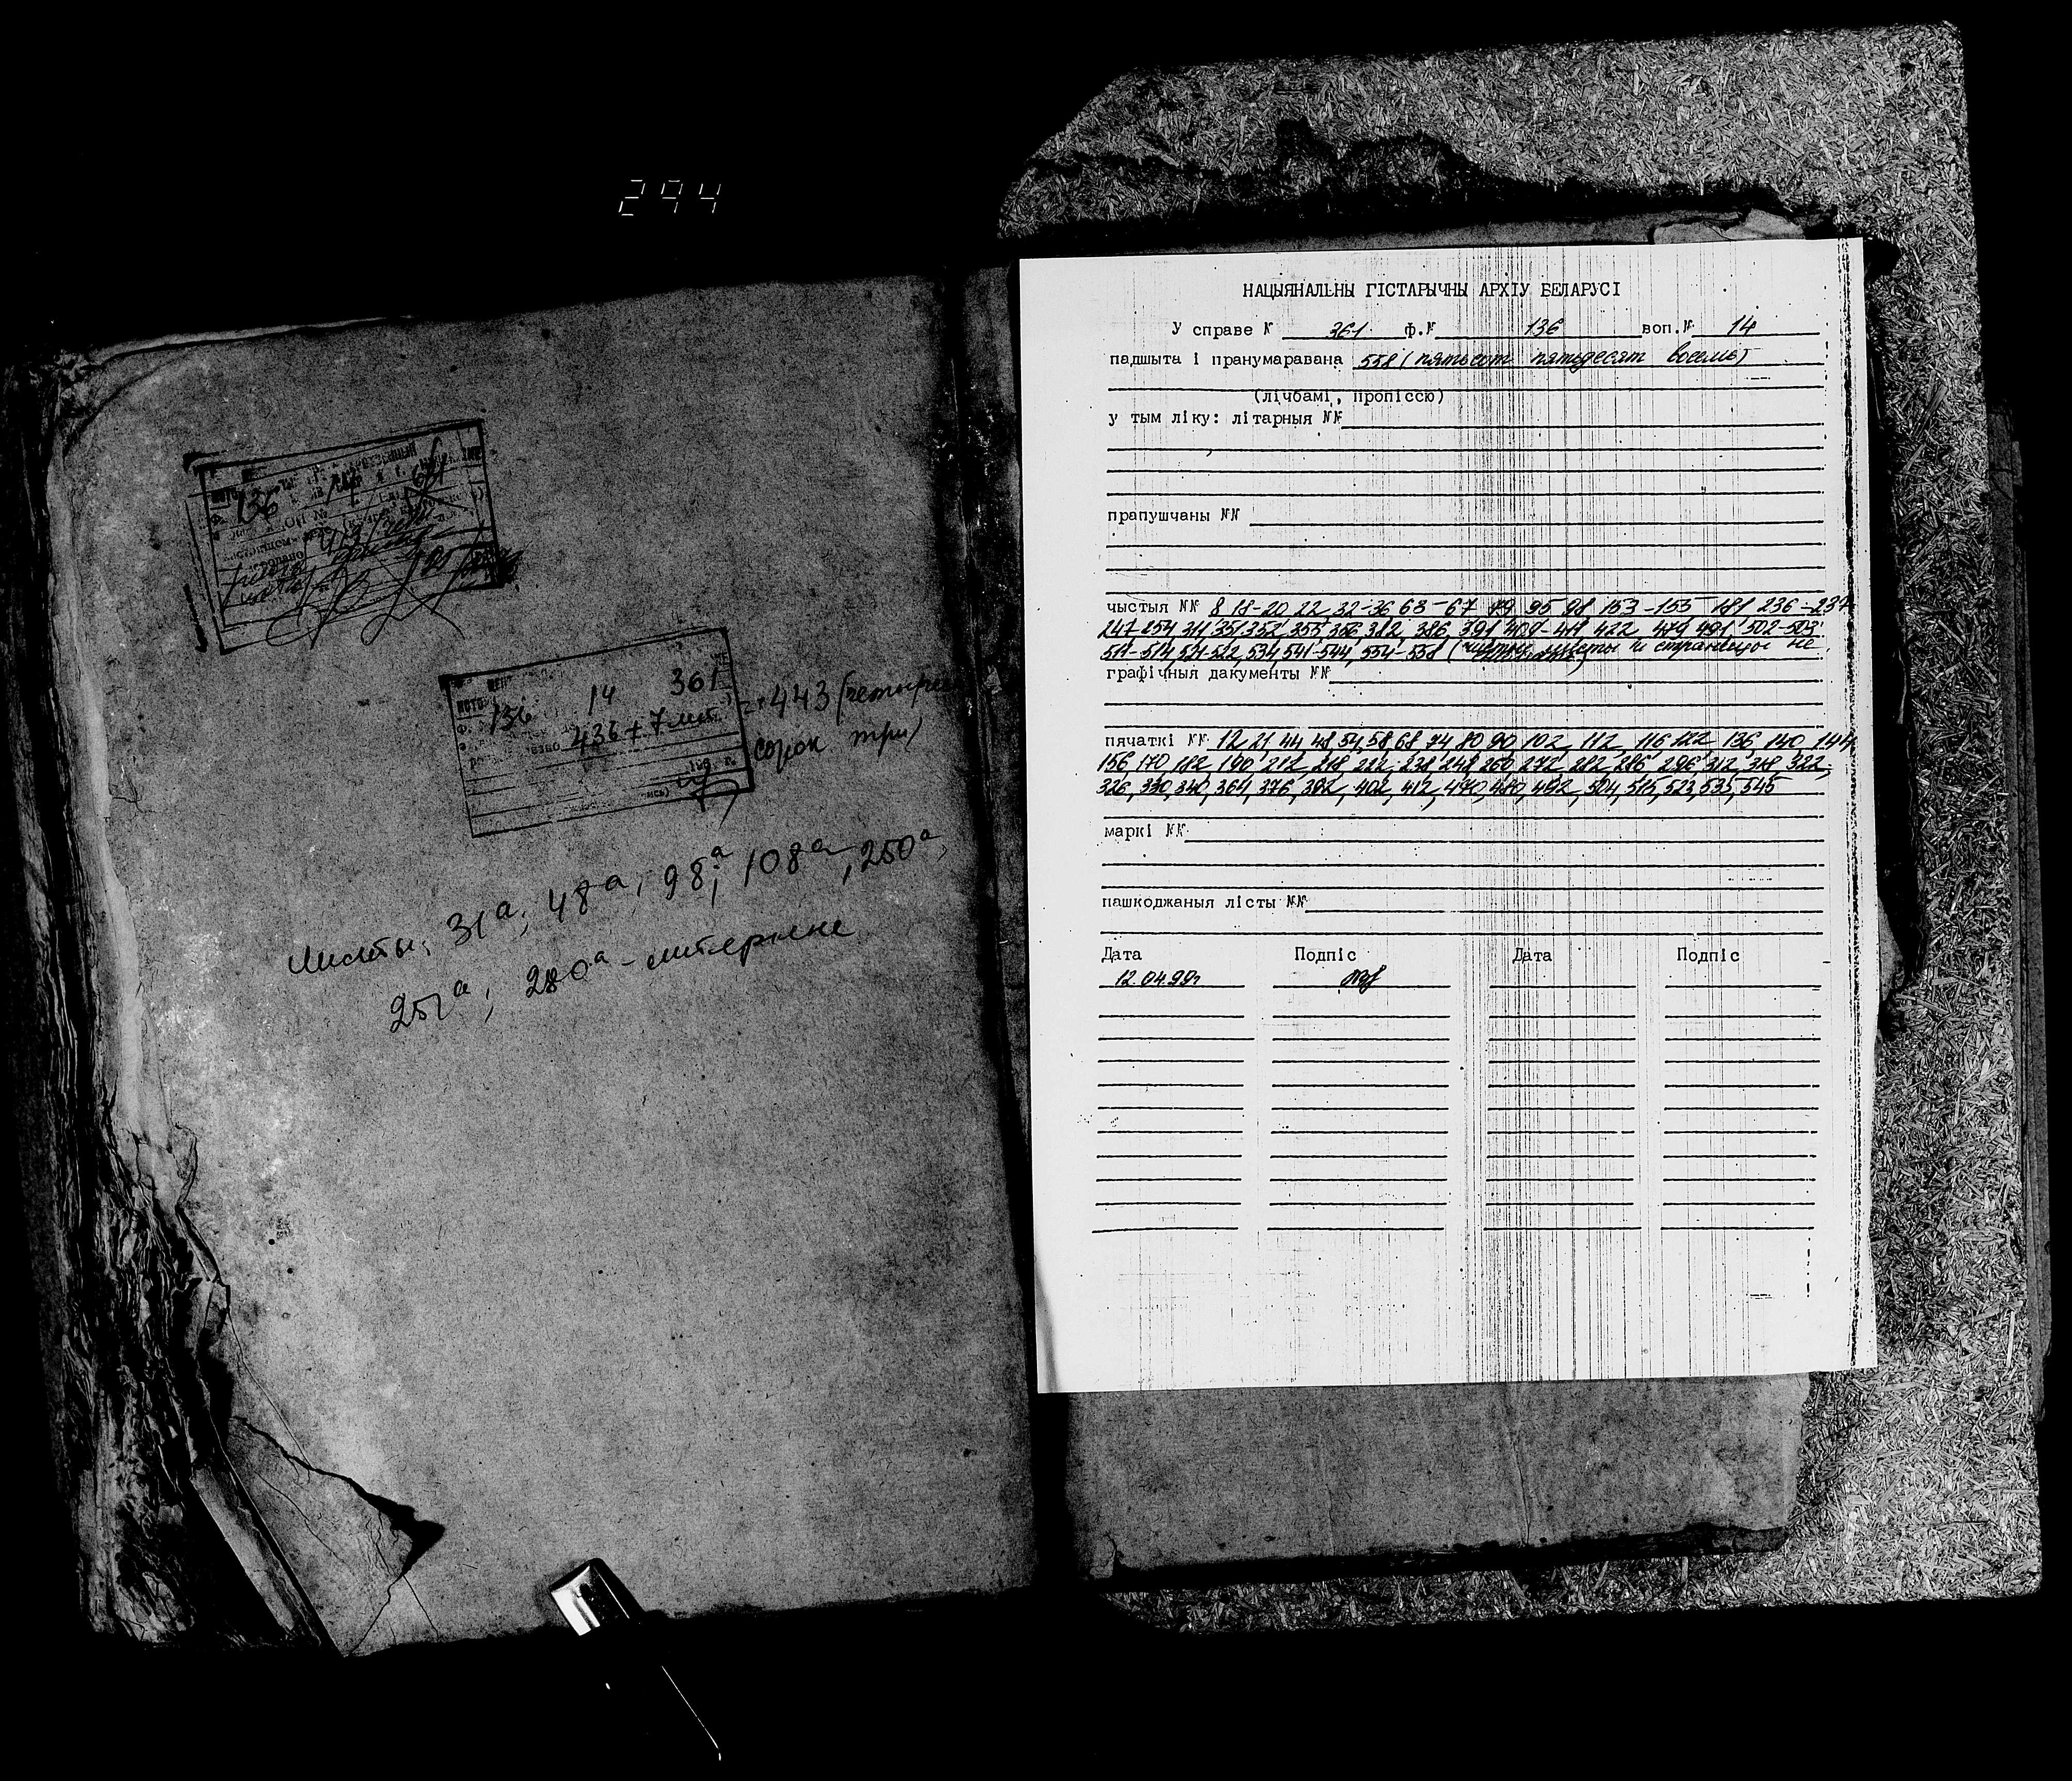 294
136
136 14 361
436 + 7 лит.
= 443 (четырест
сорок три)
Листы: 31а, 48а, 98а, 108а, 250а,
251а, 280а - литерные
НАЦЫЯНАЛЬНЫ ГІСТАРЫЧНЫ АРХІУ БЕЛАРУСІ
У справе № 361 ф.№ 136 воп.№ 14
падшыта і пранумаравана 558 (пятьсот пятьдесят восемь)
(лічбамі, пропіссю)
у тым ліку: літарныя №№
прапушчаны №№
чыстыя №№ 8 18-20 22, 32-36 63-67 79 95 98 153-155 181 236-237
247 254 311 351, 352, 355, 356 382, 386, 391 409-411 422 479 491, 502-503
511-514, 521-522, 534, 541-544, 554-558 ( листы и страницы не
графічныя дакументы №№
пячаткі №№ 12 21 44 48, 54, 58 68 74 80 90 102, 112, 116 122, 136, 140, 144
156, 170 182 190 212 218 222 238 248 260 272 282 286 296 312 318 322
326, 330, 340, 364, 376, 392, 402, 412, 470, 480, 492, 504, 515, 523, 535, 545
маркі №№
пашкоджаныя лісты №№
Дата Подпіс Дата Подпіс
12.04.99г